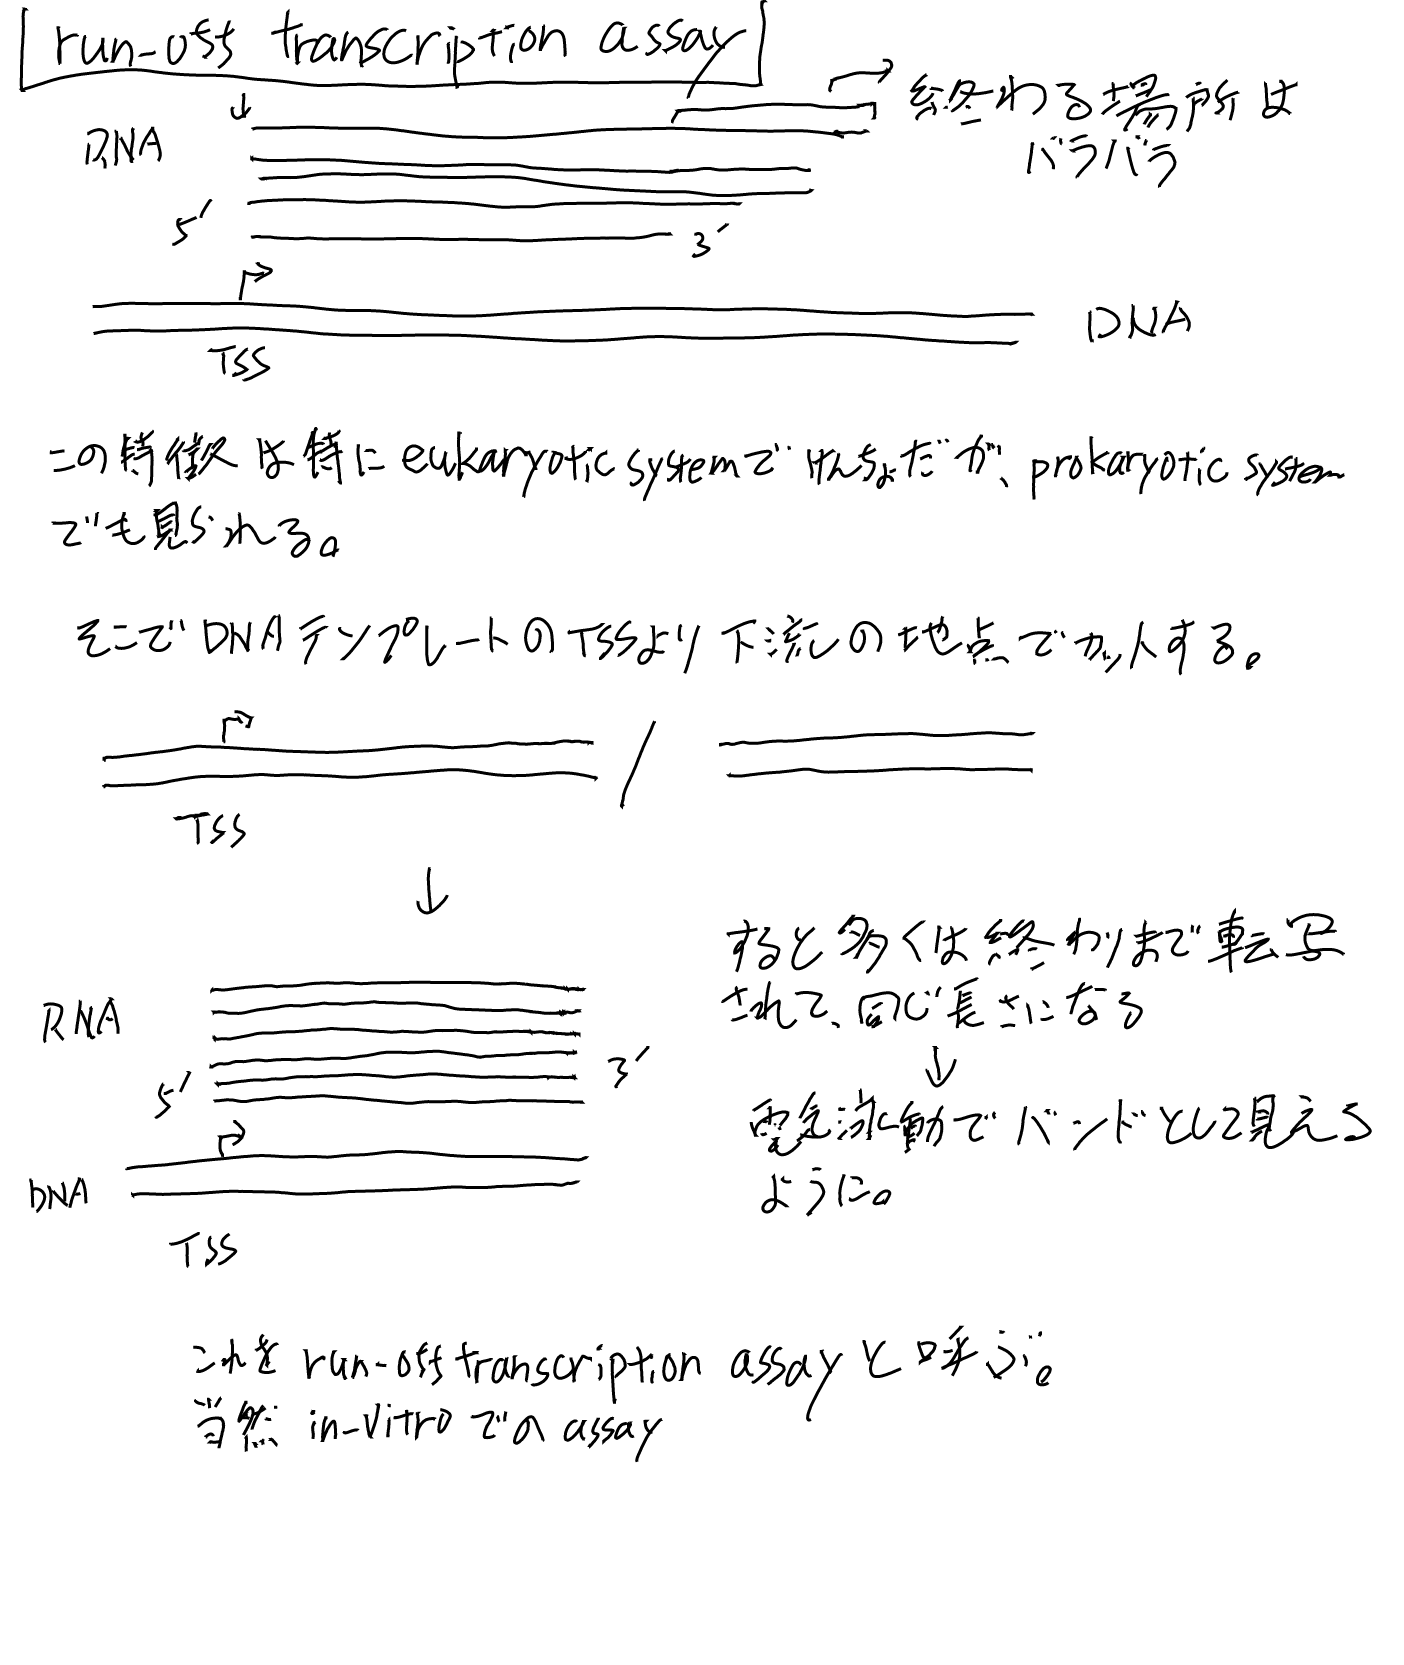 run-off transcription assay
終わる場所は
バラバラ
RNA
5′
3′
DNA
TSS
この特徴は特にeukaryotic systemでけんちょだが、prokaryotic system
でも見られる。
そこでDNAテンプレートのTSSより下流しの地点でカットする。
TSS
RNA
5′
3′
DNA
TSS
すると多くは終わりまで転写
されて、同じ長さになる
電気泳動でバンドとして見える
ように。
これをrun-off transcription assayと呼ぶ。
当然 in-vitroでのassay